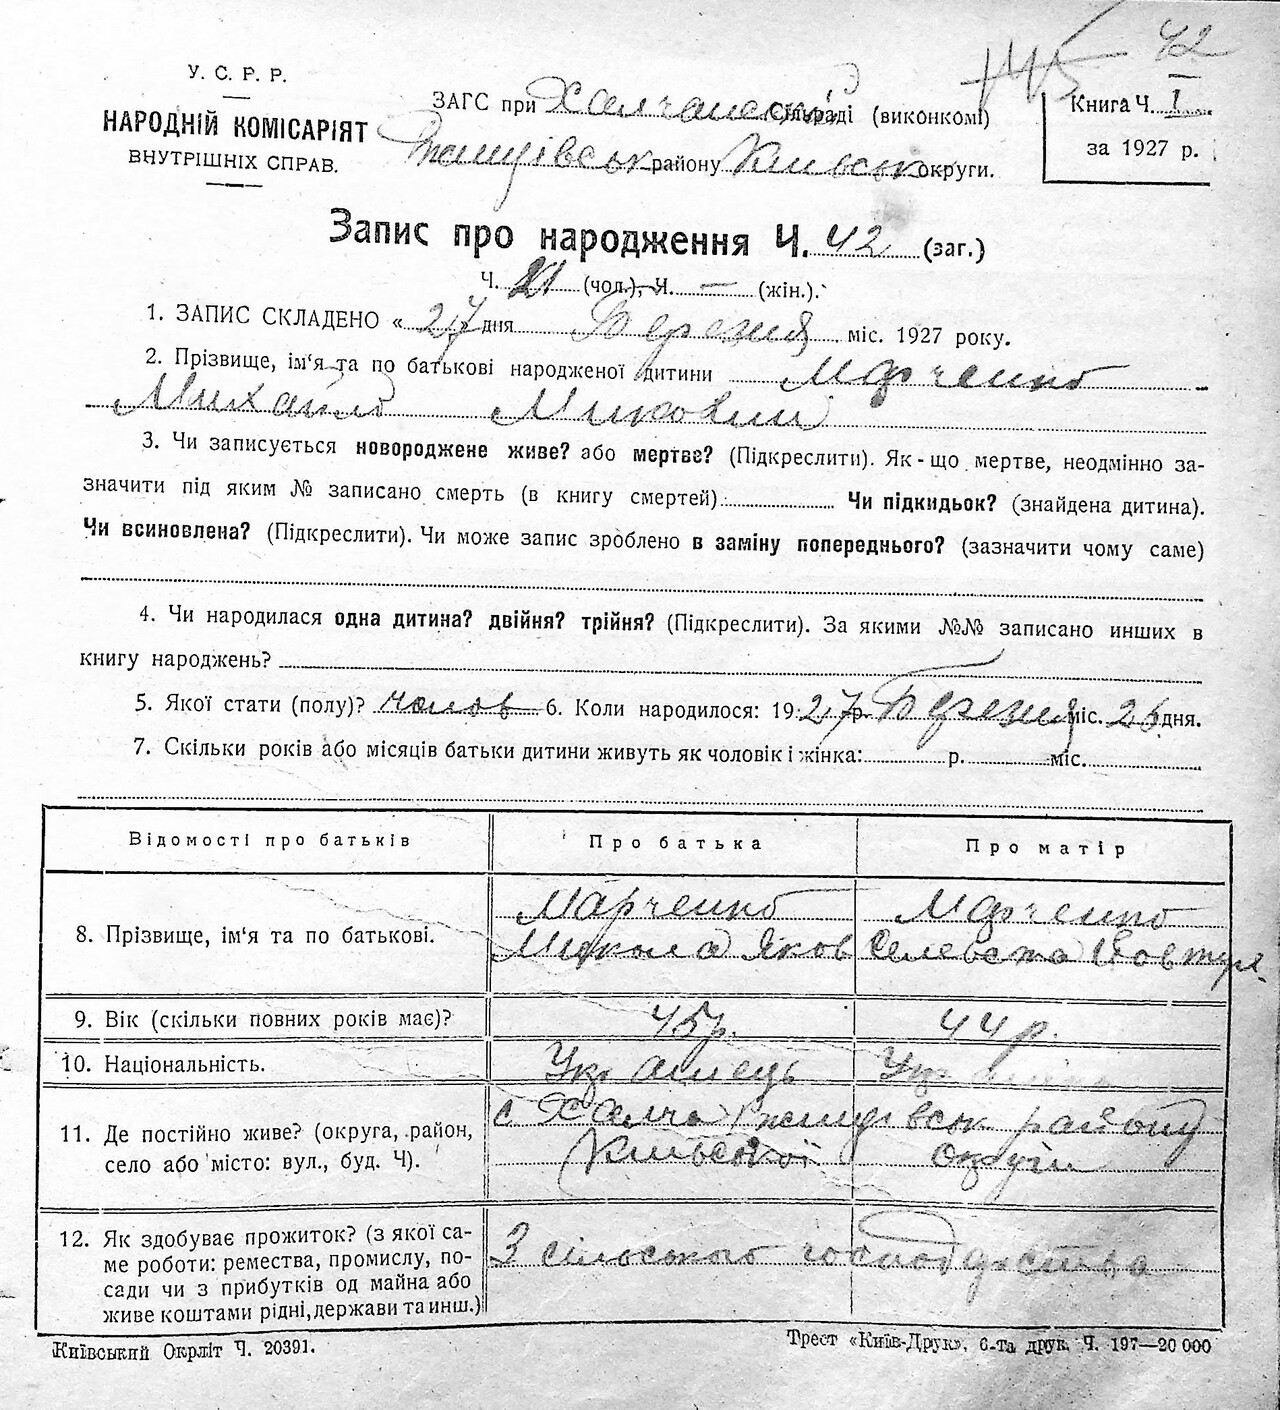 42
145
У. С. Р. Р.
НАРОДНІЙ КОМІСАРІЯТ
ВНУТРІШНІХ СПРАВ.
ЗАГС при Халчанській сільраді (виконкомі)
Ржищівськ району Київськ округи.
Книга Ч. 1
за 1927 р.
Запис про народження Ч. 42 (заг.)
Ч. 21 (чол.), Ч. — (жін.).
1. ЗАПИС СКЛАДЕНО « 27 » дня Березня міс. 1927 року.
2. Прізвище, ім'я та по батькові народженої дитини Марченко
Михайло Миколий
3. Чи записується новороджене живе? або мертве? (Підкреслити). Як-що мертве, неодмінно за-
значити під яким № записано смерть (в книгу смертей): Чи підкидьок? (знайдена дитина).
Чи всиновлена? (Підкреслити). Чи може запис зроблено в заміну попереднього? (зазначити чому саме)
4. Чи народилася одна дитина? двійня? трійня? (Підкреслити). За якими №№ записано инших в
книгу народжень?
5. Якої стати (полу)? чолов 6. Коли народилося: 1927 р. Березня міс. 26 дня.
7. Скільки років або місяців батьки дитини живуть як чоловік і жінка: р. міс.
Відомості про батьків Про батька Про матір
8. Прізвище, ім'я та по батькові. Марченко Микола Яков Марченко Селевста Йовтух
9. Вік (скільки повних років має)? 45 р. 44 р.
10. Національність. Українець Українка
11. Де постійно живе? (округа, район,
село або місто: вул., буд. Ч). с Халча Ржищівськ району
Київської Округи
12. Як здобуває прожиток? (з якої са-
ме роботи: ремества, промислу, по-
сади чи з прибутків од майна або
живе коштами рідні, держави та инш.) З сільського господарства
Київський Окрліт Ч. 20391.
Трест «Київ-Друк», 6-та друк. Ч. 197—20 000